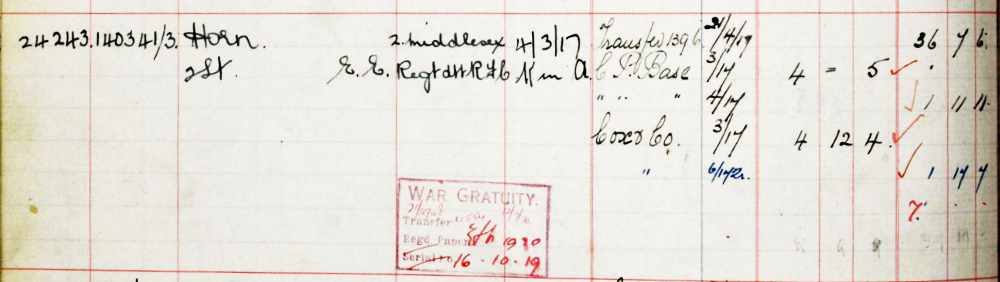 24 243.140341/3. Horn. 2. Middlesex 4/3/17 Transfer 1396 21/4/19 36 7 6.
2Lt. E. E. Regt att R F C K in A. C P Base 3/17 4 - 5
" " " 4/17 1 11 11.
Cox & Co. 3/17 4 12 4.
" 6/17 1 17 7
WAR GRATUITY.
Transfer
Regd. Papers 1920
Serial No 16 - 10 - 19
7.